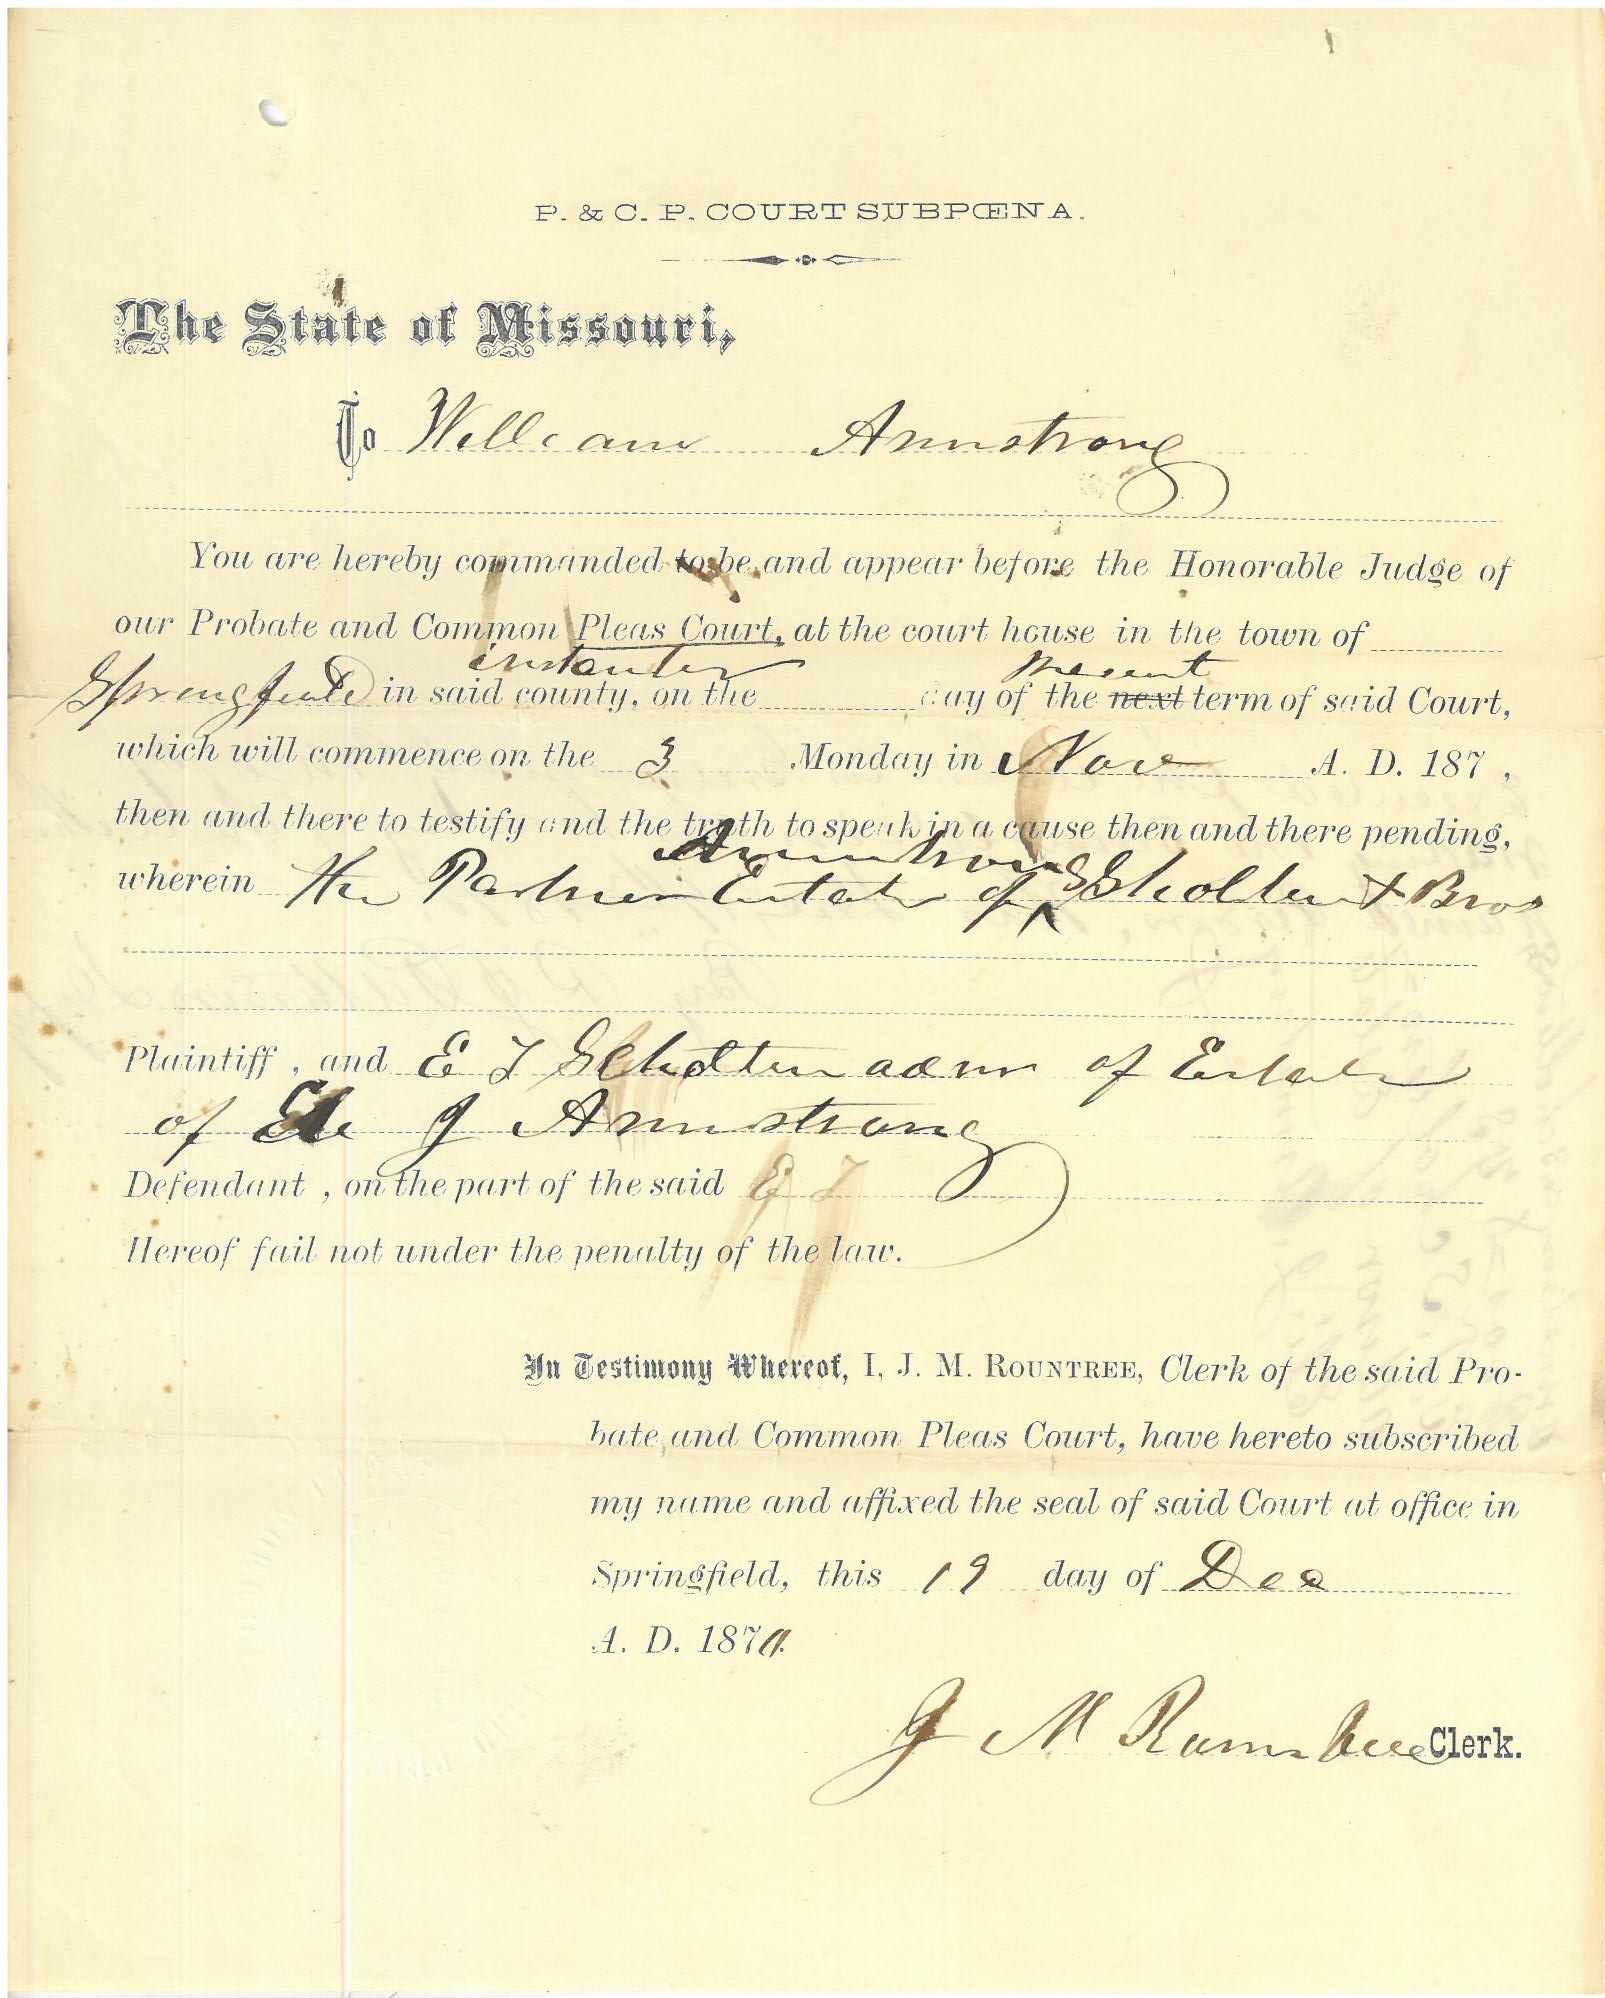 P. & C. P. COURT SUBPŒNA.
The State of Missouri,
To William Armstrong
You are hereby commanded to be and appear before the Honorable Judge of
our Probate and Common Pleas Court, at the court house in the town of
instanter present
Springfield in said county, on the day of the next term of said Court,
which will commence on the 3 Monday in Nov A. D. 187 ,
then and there to testify and the truth to speak in a cause then and there pending,
Armstrong
wherein the Partner Estate of Scholten & Bros
Plaintiff , and E T Scholten admr of Estate
of J Armstrong
Defendant , on the part of the said E T
Hereof fail not under the penalty of the law.
In Testimony Whereof, I, J. M. ROUNTREE, Clerk of the said Pro-
bate and Common Pleas Court, have hereto subscribed
my name and affixed the seal of said Court at office in
Springfield, this 19 day of Dec
A. D. 1870.
J M Rountree Clerk.